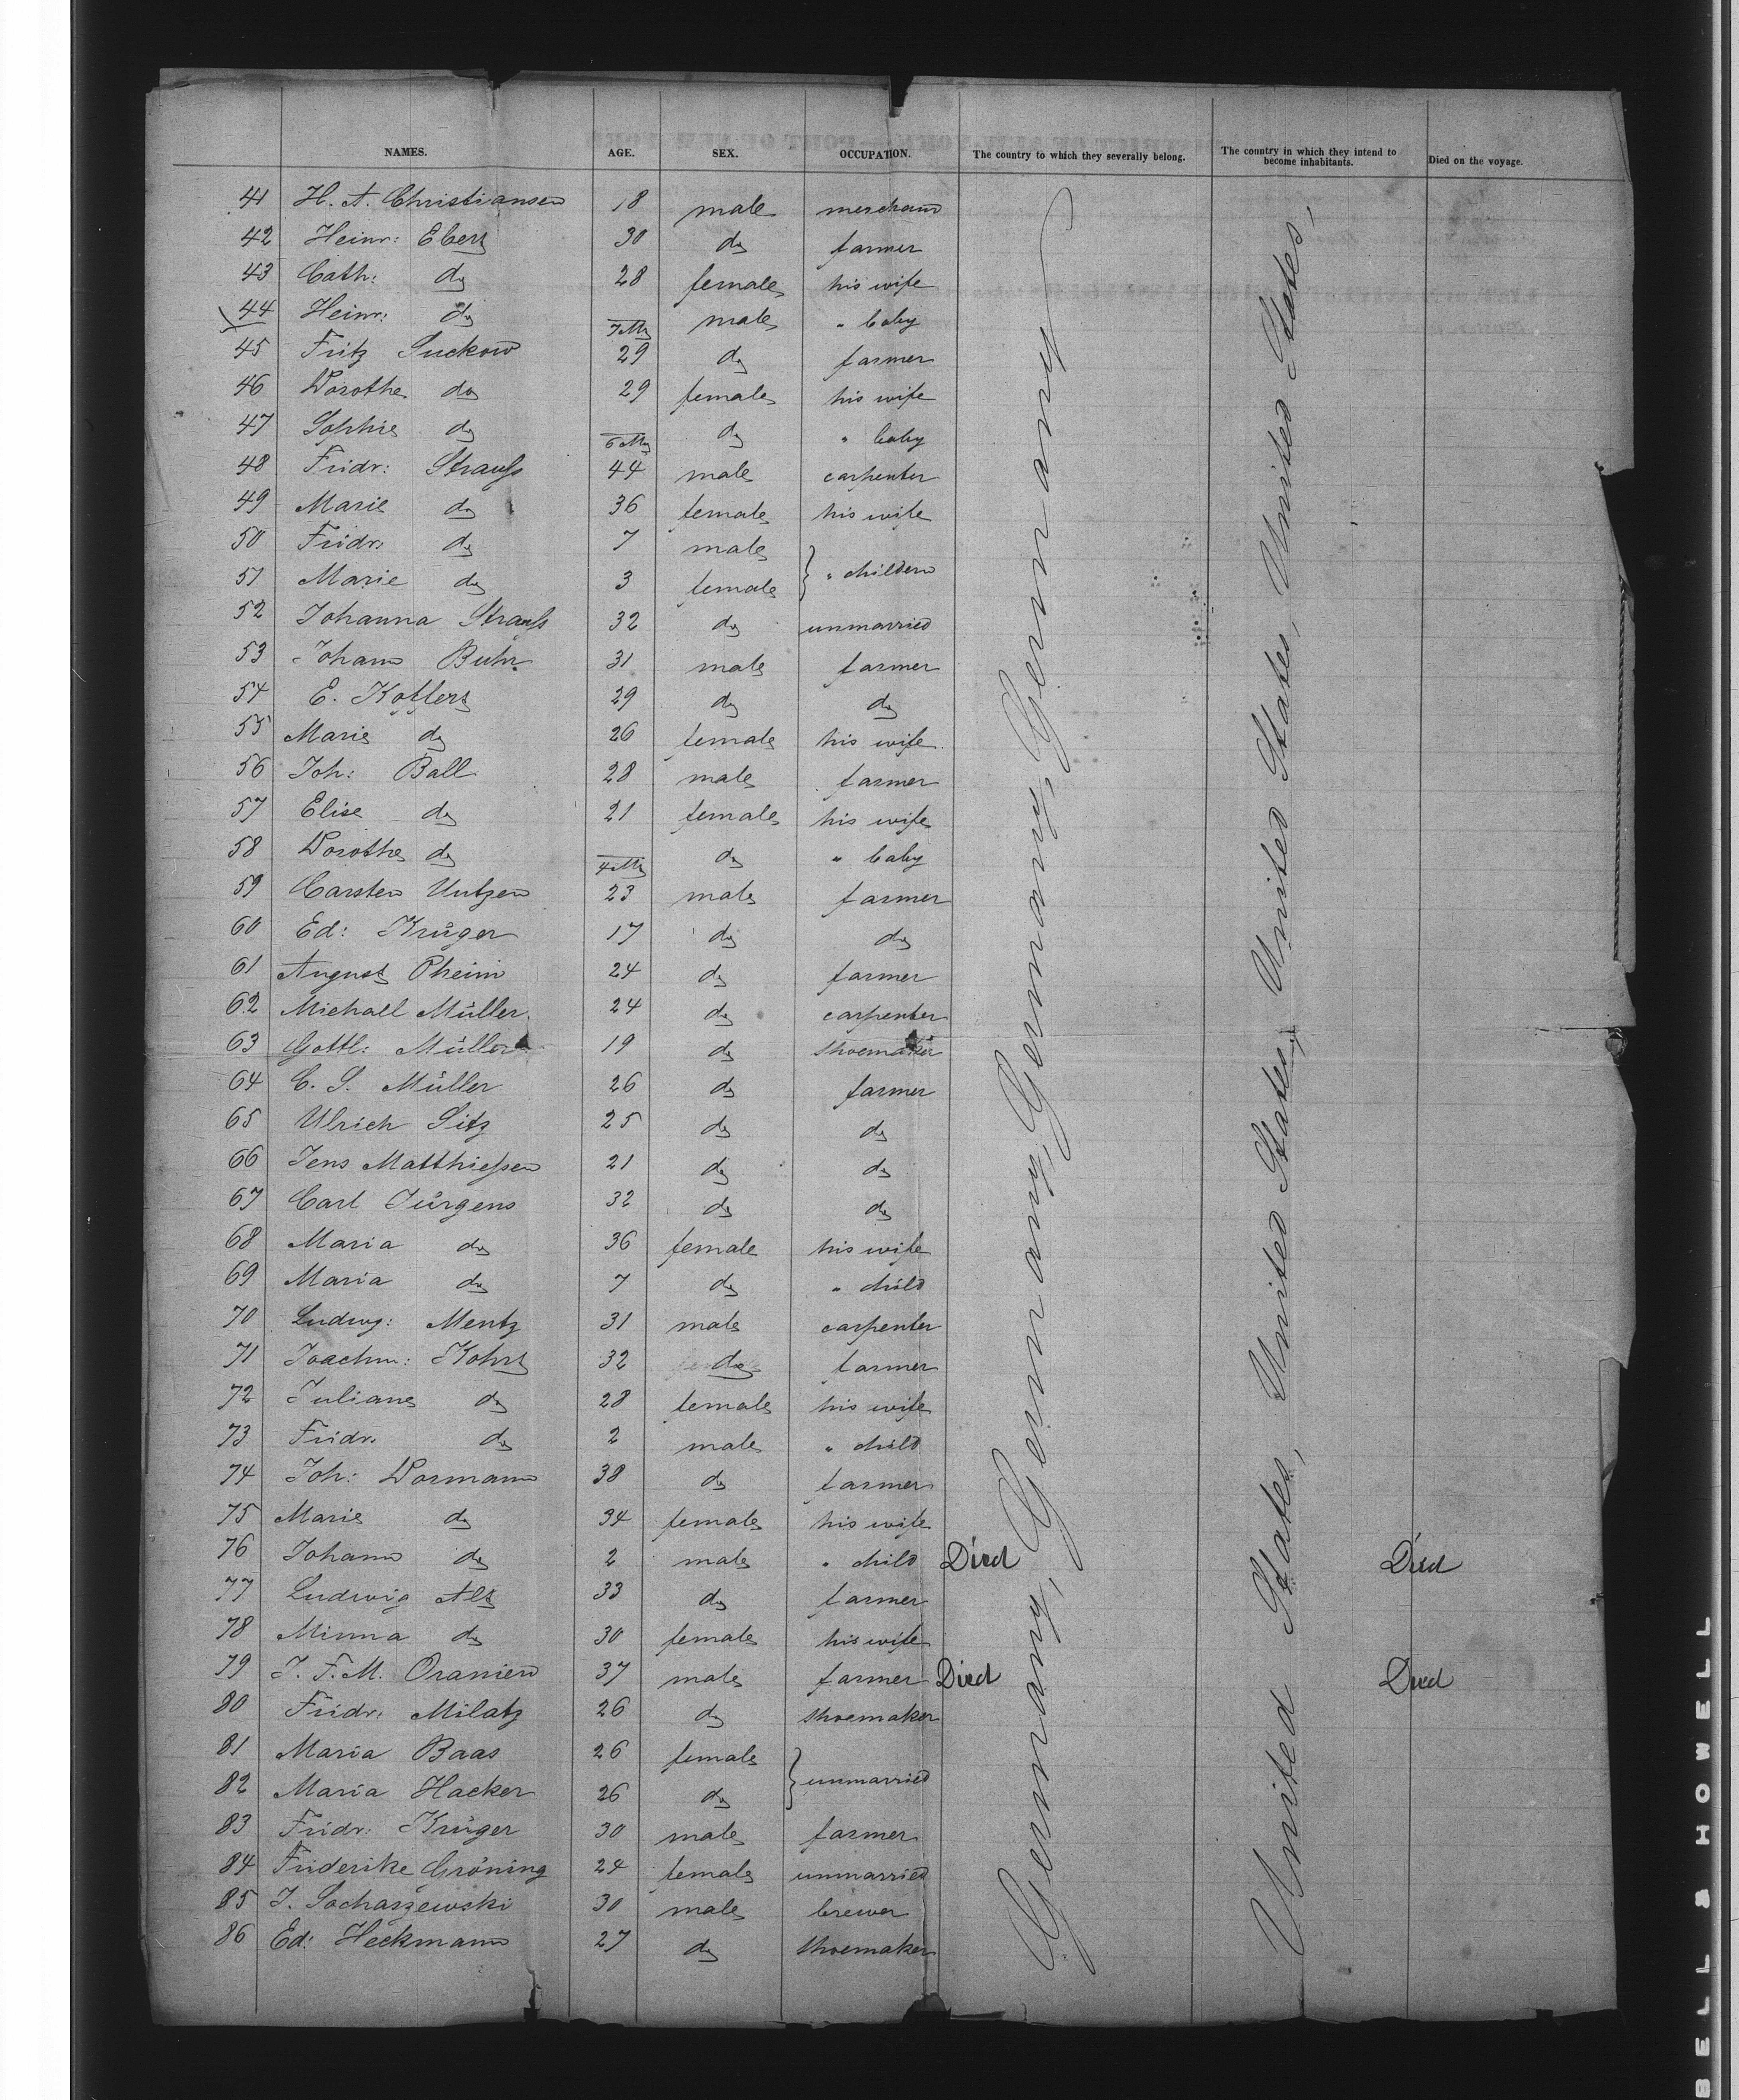 NAMES. AGE. SEX. OCCUPATION. The country to which they severally belong. The country in which they intend to become inhabitants. Died on the voyage.
41 H. A. Christiansen 18 male merchant
42 Heinr: Ebert 30 do farmer
43 Cath: do 28 female his wife
44 Heinr: do 7 Mo male " baby
45 Fritz Suckow 29 do farmer
46 Dorothe do 29 female his wife
47 Sophie do 6 Mo do " baby
48 Fridr: Strauß 44 male carpenter
49 Marie do 36 female his wife
50 Fridr: do 7 male } " children
51 Marie do 3 female
52 Johanna Strauß 32 do unmarried
53 Johann Buhr 31 male farmer
54 E. Kollert 29 do do
55 Marie do 26 female his wife
56 Joh: Ball 28 male farmer
57 Elise do 21 female his wife
58 Dorothe do 4 Mo do " baby
59 Carsten 23 male farmer
60 Ed: Krüger 17 do do
61 August 24 do farmer
62 Michael Müller 24 do carpenter
63 Gottl: Müller 19 do shoemaker
64 C. S. Müller 26 do farmer
65 Ulrich Sitz 25 do do
66 Jens Matthießen 21 do do
67 Carl Jürgens 32 do do
68 Maria do 36 female his wife
69 Maria do 7 do " child
70 Ludwg: Mentz 31 male carpenter
71 Joachm: Kohrt 32 do farmer
72 Juliane do 28 female his wife
73 Fridr. do 2 male " child
74 Joh: Dormann 38 do farmer
75 Marie do 34 female his wife
76 Johann do 2 male " child Died Died
77 Ludwig Alt 33 do farmer
78 Minna do 30 female his wife
79 J. F. M. Oranien 37 male farmer Died Died
80 Fridr: Milatz 26 do shoemaker
81 Maria Baas 26 female } unmarried
82 Maria Hacker 26 do
83 Fridr: Krüger 30 male farmer
84 Friderike Gröning 24 female unmarried
85 J. Sochaszewski 30 male brewer
86 Ed: Heckmann 27 do shoemaker
Germany, Germany, Germany, Germany
United States, United States, United States, United States,
BELL & HOWELL